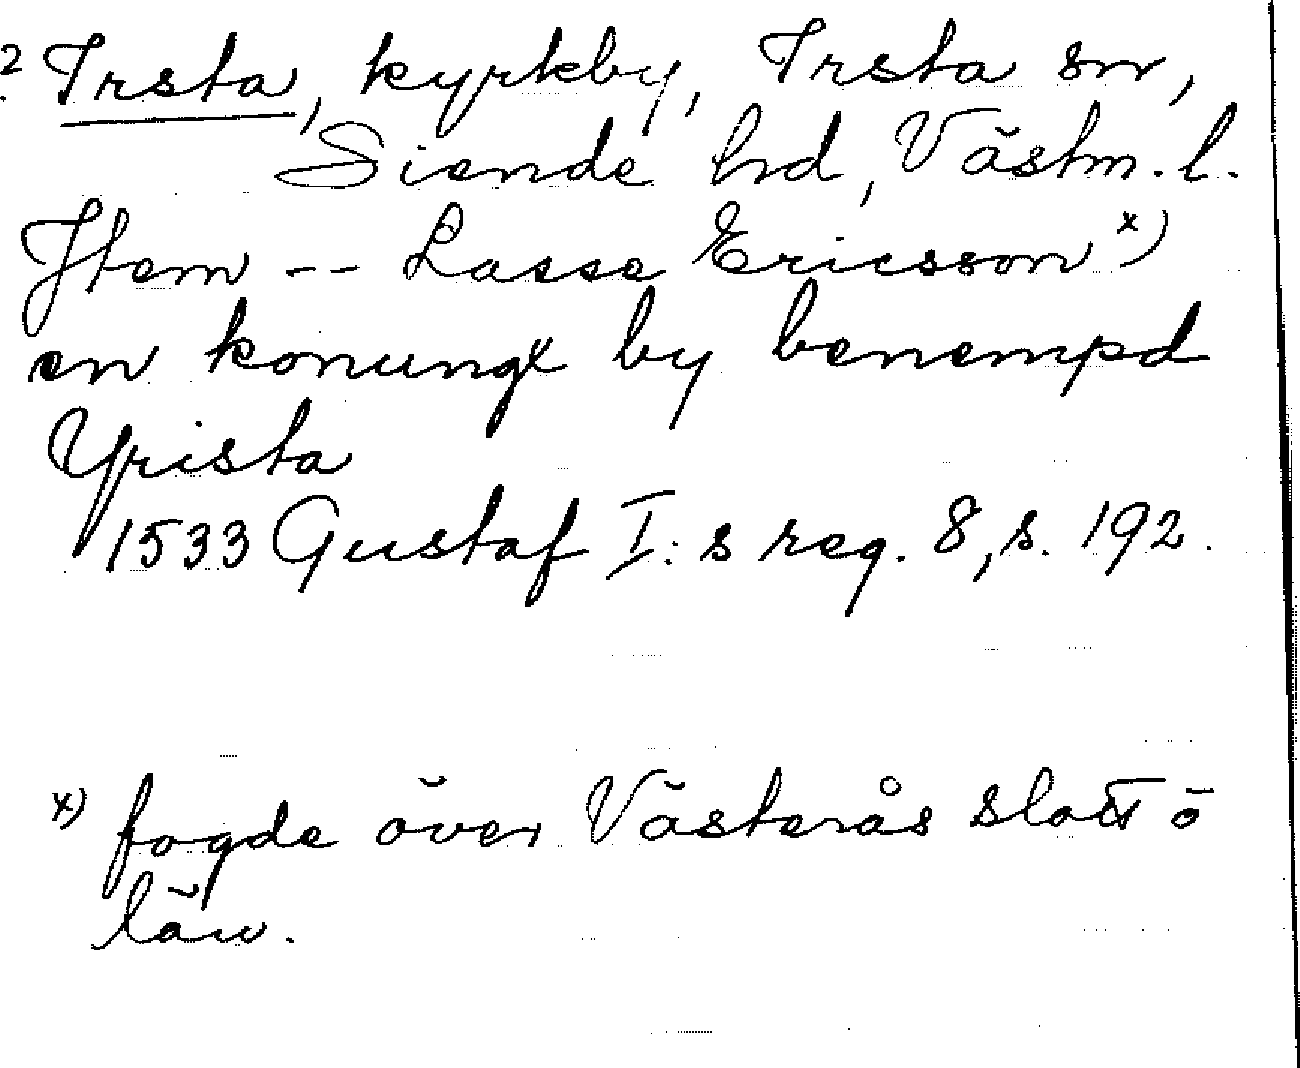 ? Irsta, kyrkby, Irsta sn,
Siende hd, Västm. l.
Jtem -- Lasse Ericsson x)
en konungx by benempd
Yrista
1533 Gustaf I:s reg. 8, s. 192.
x) fogde över Västerås slott o
län.